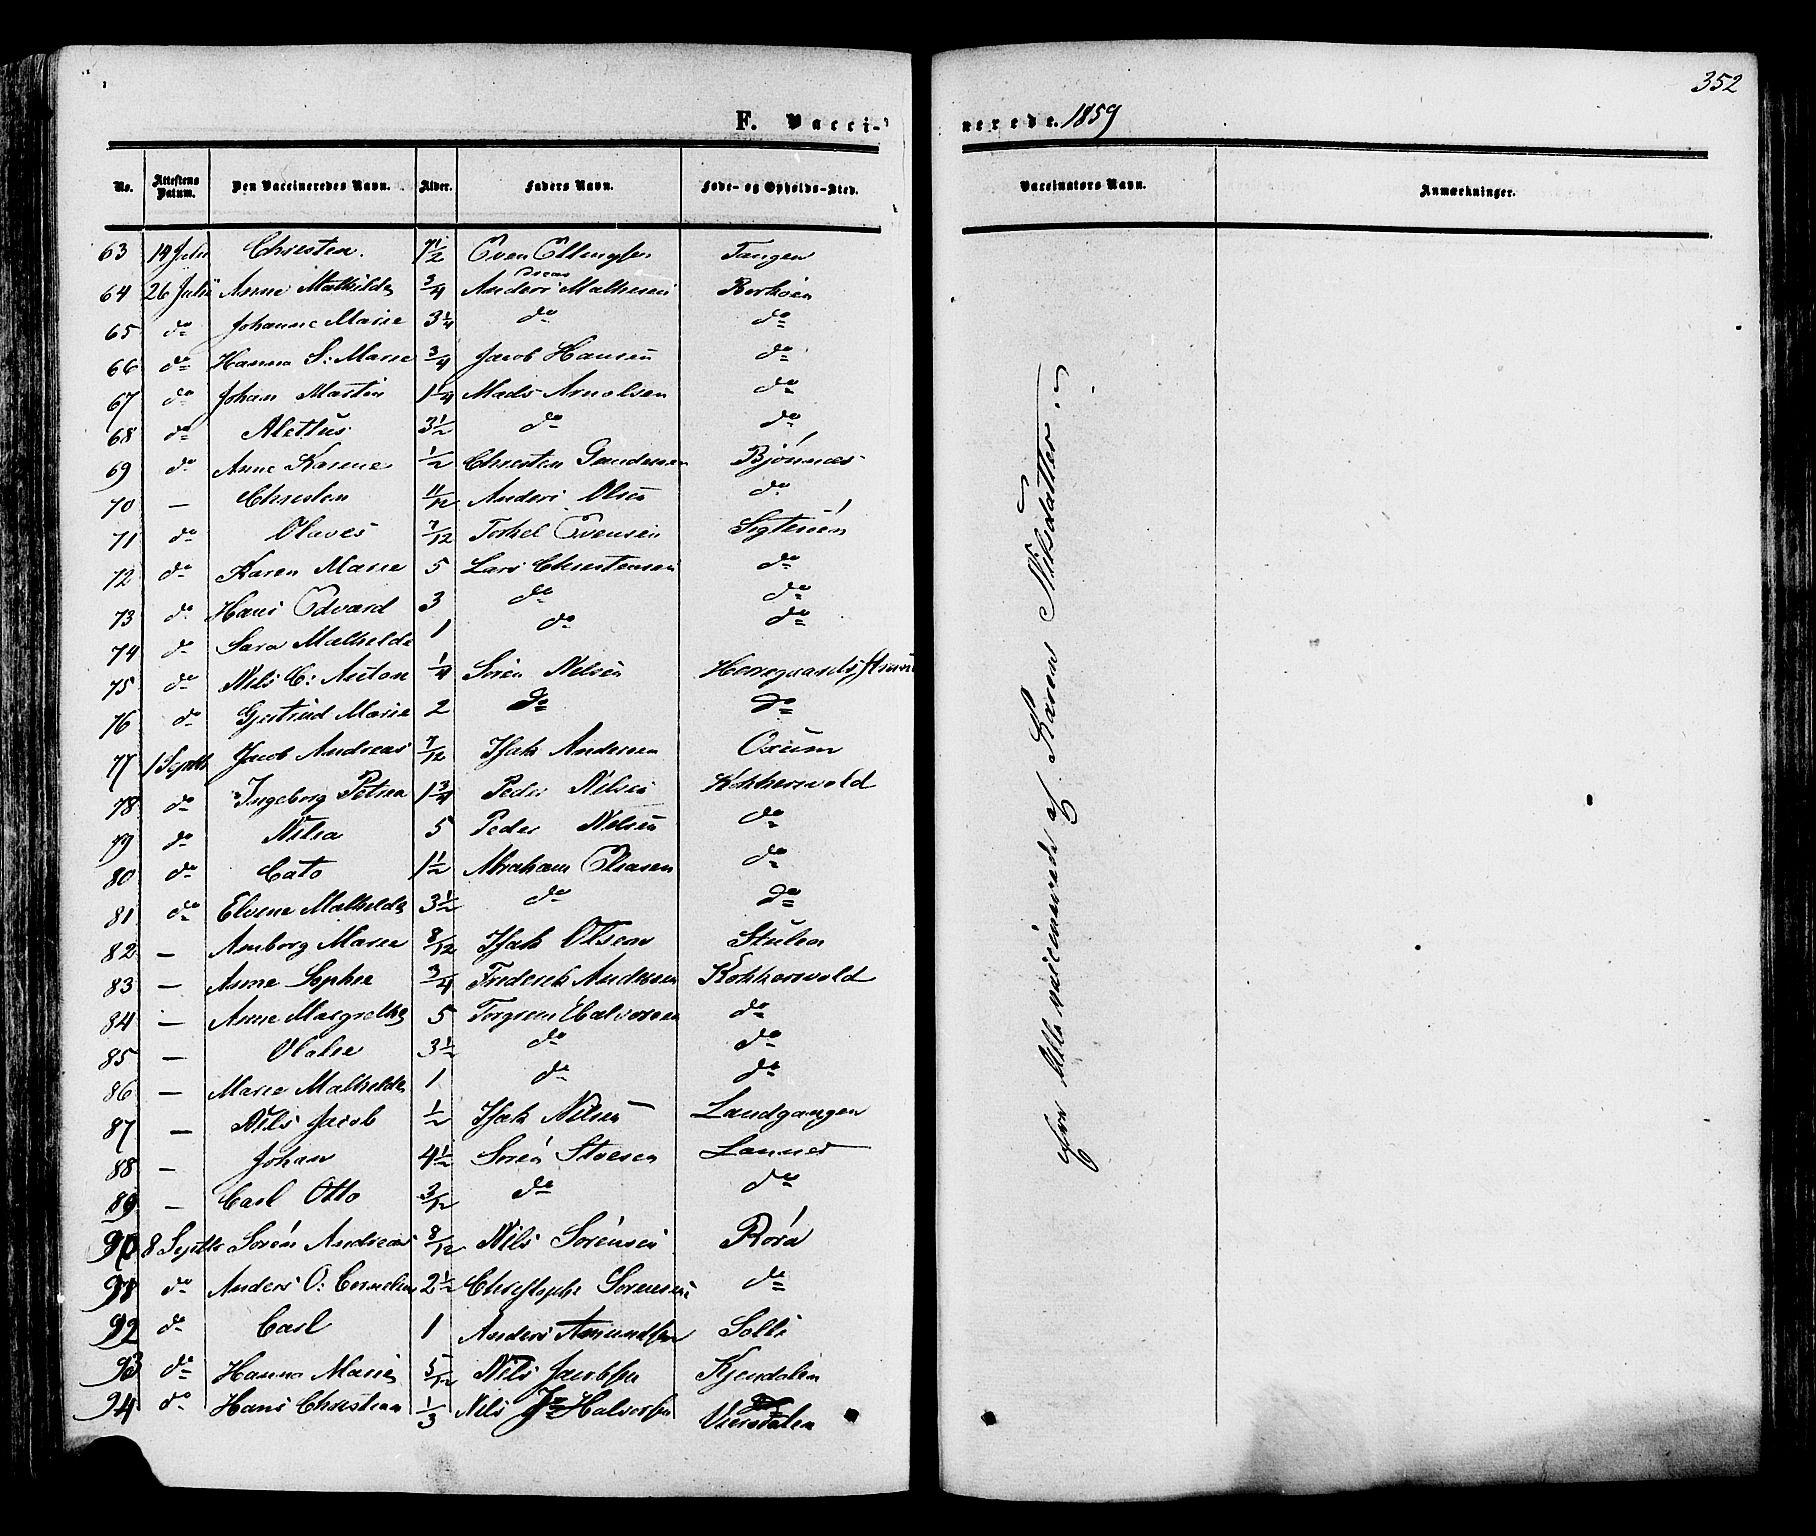 352
F. Vacci-
nerede. 1859
No. Attestens Datum. Den Vaccineredes Navn. Alder. Faders Navn. Føde- og Opholds-Sted. Vaccinators Navn. Anmærkninger.
63 14 Julii Christen. 7 1/2 Even Ellingsen Tangen
64 26 Julii Anne Mathilde 3/4 Anders Mathesen Berhoen
dreas
65 do Johanne Marie 3 1/4 do do
66 do Hanna S: Marie 3/4 Jacob Hansen do
67 do Johan Martin 1 1/4 Mads Arnolsen do
68 do Alettus 3 1/2 do do
69 do Anne Karine 1/2 Christen Gundersen Bjønnes
70 — Christen 11/12 Anders Olsen do
71 do Olaves 7/12 Torkel Evensen Sigtesøen
72 do Karen Marie 5 Lars Christensen do
73 do Hans Edvard 3 do do
74 do Sara Mathilde 1 do do
75 do Nils C: Anton 1/4 Søren Nilsen
76 do Gjertrud Marie 2 do do
77 1 Septb Jacob Andreas 7/12 Isak Andersen Oxum
78 do Ingeborg Petrea 1 3/4 Peder Nilsen Kokkersvold
79 do Nilia 5 Peder Nilsen do
80 do Cato 1 1/2 Abraham Eliasen do
81 do Elvene Mathilde 3 1/2 do do
82 — Amborg Marie 8/12 Isak Olsen Stulen
83 — Anne Sophie 3/4 Frederik Andersen Kokkersvold
84 — Anne Margrethe 5 Torgrim Halvorsen do
85 — Olalie 3 1/2 do do
86 — Marie Mathilde 1 do do
87 — Nils Jacob 1/2 Isak Nilsen Landgangen
88 — Johan 4 1/2 Søren Stoesen Lanner
89 — Carl Otto 3/12 do do
90 8 Septb Søren Andreas 8/12 Nils Sørensen Røra
91 do Anders O: Cornelius 2 1/2 Christophe Sørensen do
92 do Carl 1 Anders Amundsen Solli
93 do Hanna Marie 5/12 Nils Jacobsen Kjendalen
94 do Hans Christian 1/3 Nils Halvorsen Viersdalen
Alle vaccinerede af Karen Nilsdatter